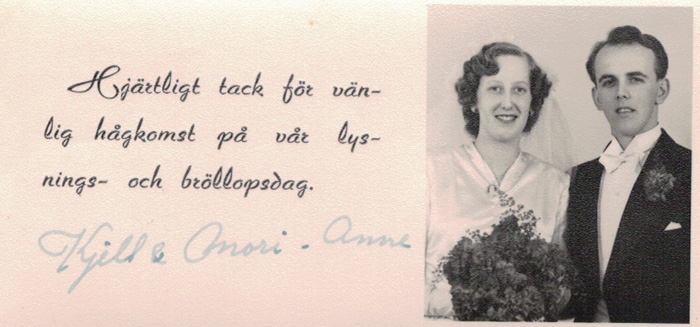 Hjärtligt tack för vän-
lig hågkomst på vår lys-
nings- och bröllopsdag.
Kjell & Mori - Anne